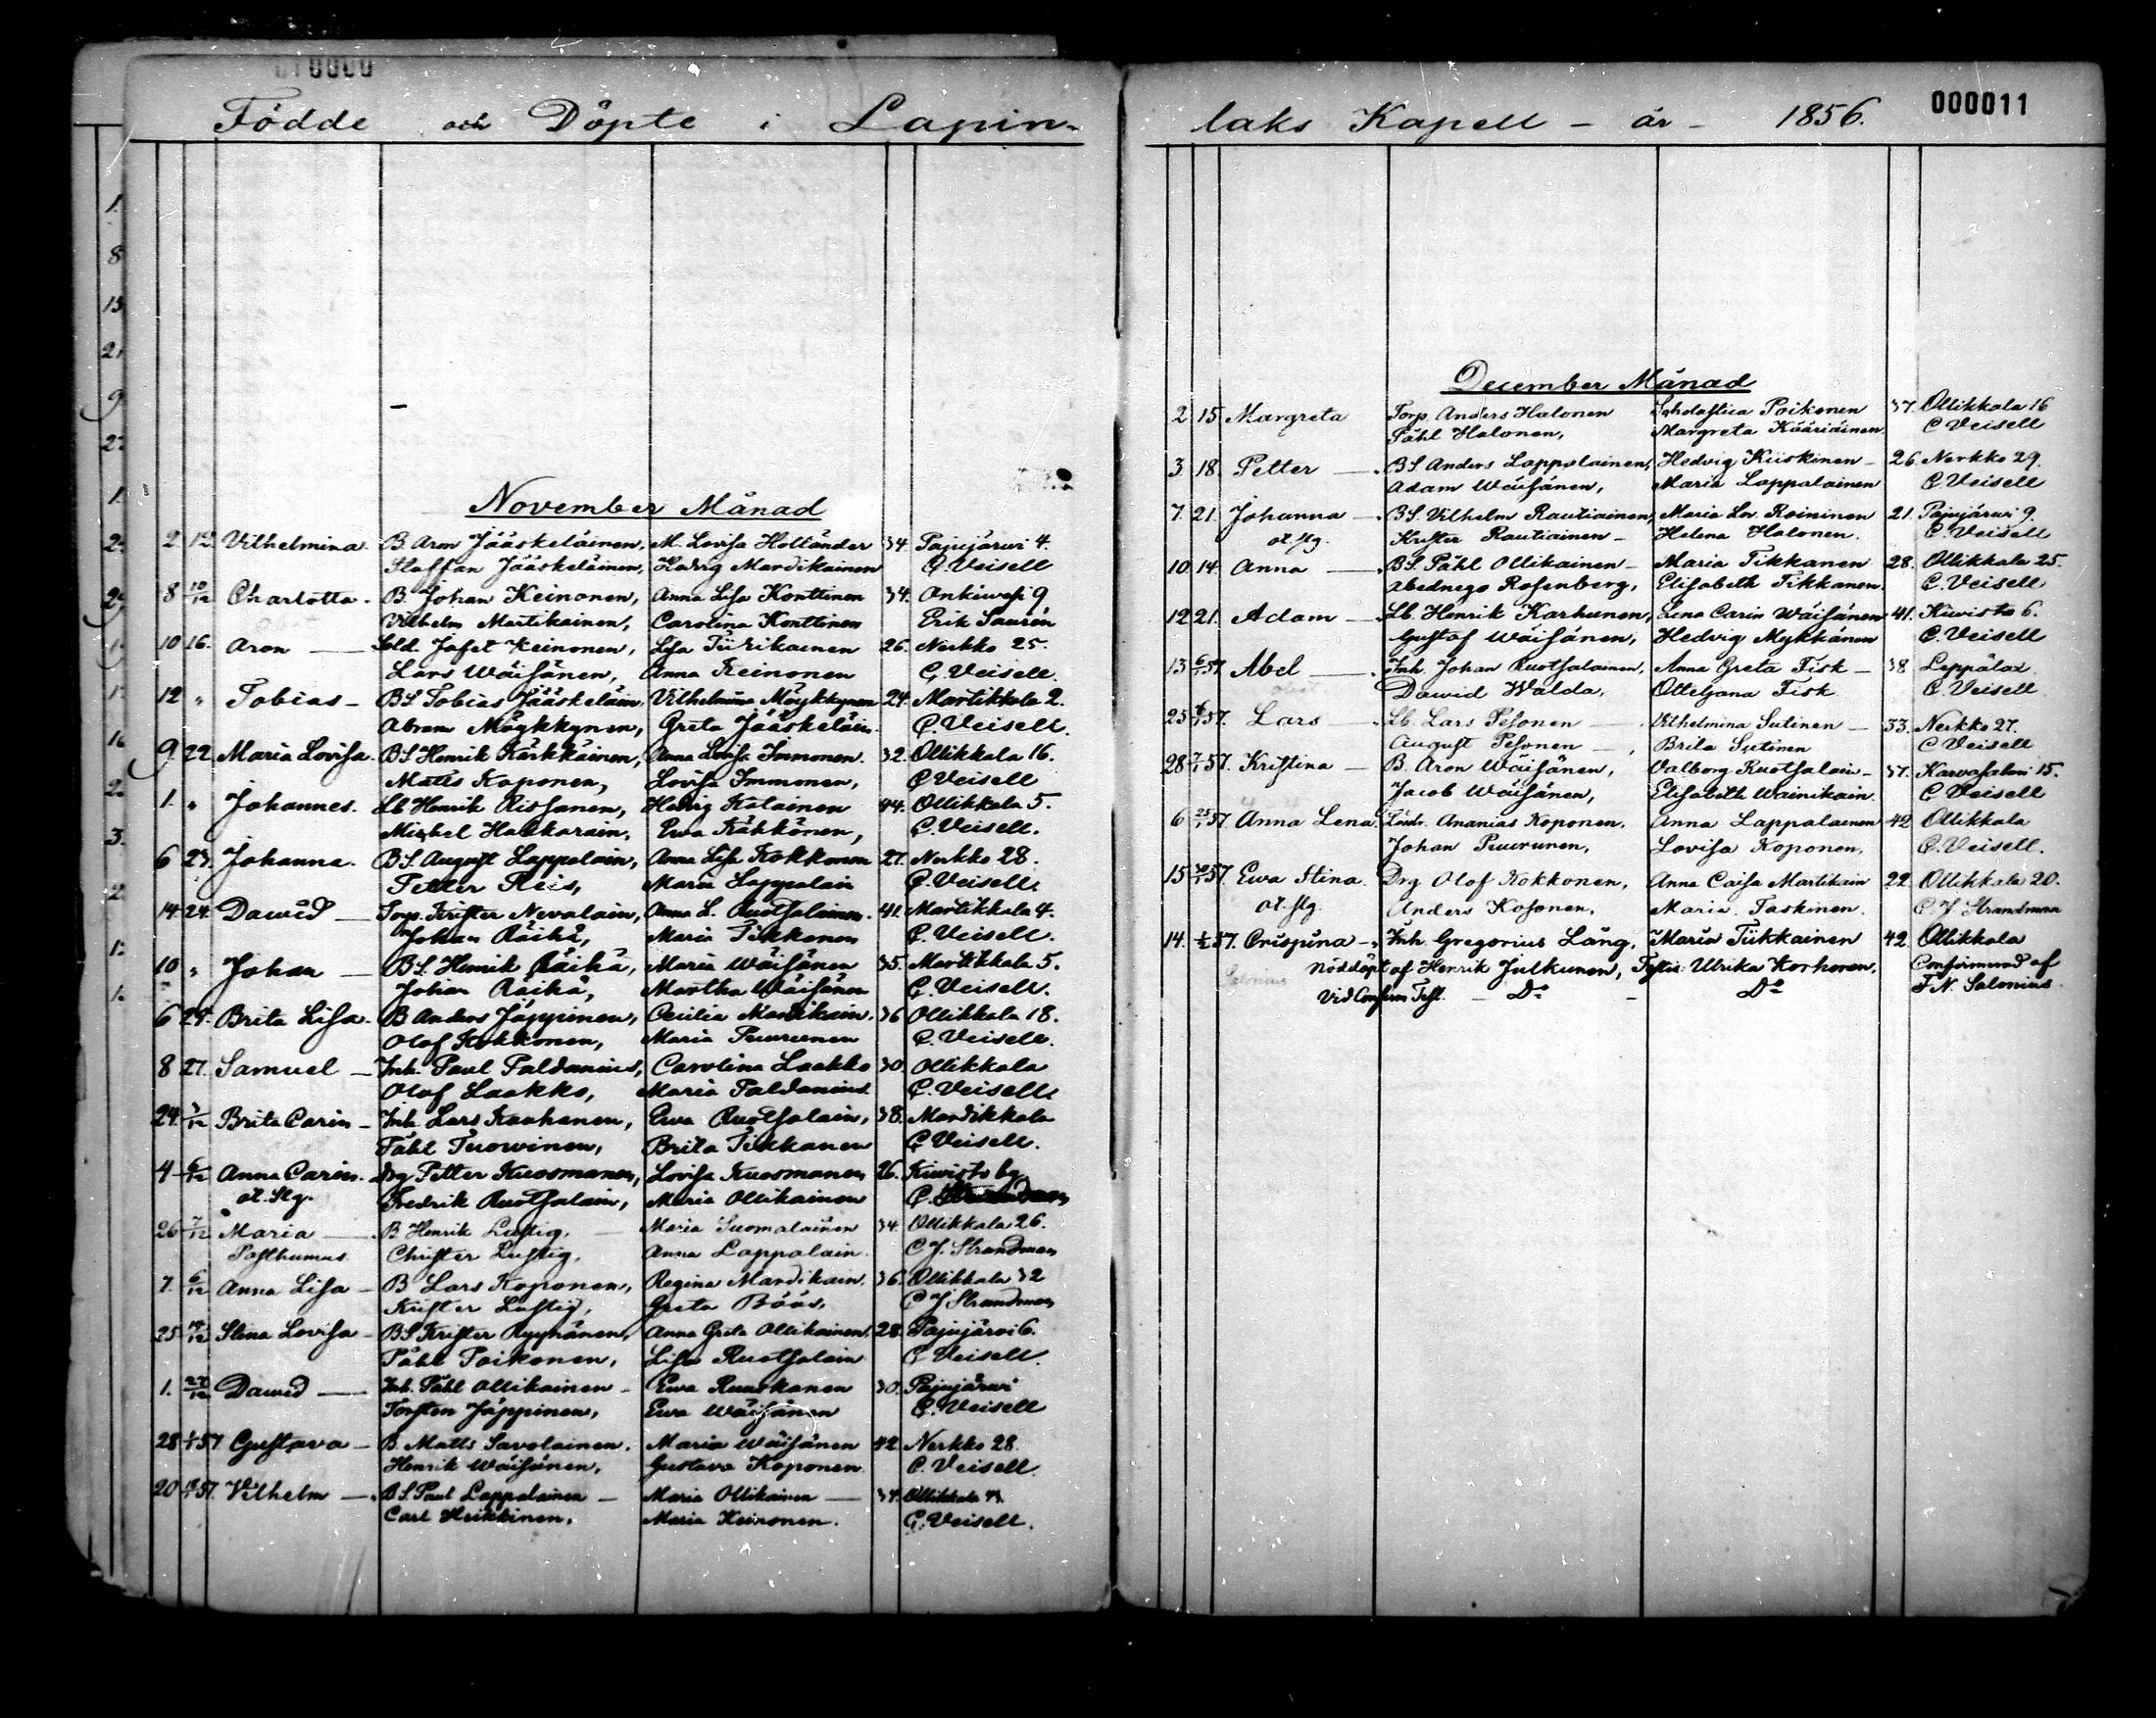 Födde och Döpte i Lapin-
November Månad
2 12 Vilhelmina. B. Aron Jääskeläinen, M. Lovisa Holländer 34. Pajujärwi 4.
Staffan Jääskeläinen, Hedvig Mardikainen C. Veisell
8 10/12 Charlotta. B. Johan Keinonen, Anna Lisa Konttinen 34. Onkiwesi 9
Vilhelm Martikainen, Carolina Konttinen Erik Saurén
10 16. Aron — Sold. Jafet Keinonen, Lisa Tiirikainen 26. Nerkko 25.
Lars Wäisänen, Anna Keinonen C. Veisell.
12 " Tobias — BS. Tobias Jääskeläin, Vilhelmina Möykkynen 24. Martikkala 2.
Abram Möykkynen, Greta Jääskeläin. C. Veisell.
9 22. Maria Lovisa. BS. Henrik Kärkkäinen, Anna Lovisa Immonen. 32. Ollikkala 16.
Matts Koponen, Lovisa Immonen, C Veisell
1. " Johannes. Lb Henrik Rissanen, Hedvig Kolainen 44. Ollikkala 5.
Michel Hakkarain, Ewa Käkkönen, C. Veisell.
6 23. Johanna. BS. August Lappalain, Anna Lisa Kokkonen 27. Nerkko 28.
Petter Reis, Maria Lappalain C. Veisell.
14. 24. Dawid — Torp. Krister Nevalain, Anna L. Ruotsalainen. 41. Martikkala 4.
Johan Räihä, Maria Tikkanen C. Veisell.
10 " Johan — BS. Henrik Räihä, Maria Wäisänen 35. Martikkala 5.
Johan Räihä, Martha Wäisänen C. Veisell.
6 24. Brita Lisa. B Anders Jäppinen, Cecilia Mardikain. 36 Ollikkala 18.
Olof Kokkonen, Maria Puurunen C. Veisell.
8 27. Samuel — Inh. Paul Paldanius, Carolina Laakko 30 Ollikkala
Olof Laakko, Maria Paldanius C. Veisell.
24. 3/12 Brita Carin — Inh. Lars Kauhanen, Ewa Ruotsalain, 38. Mardikkala
Påhl Tuovinen, Brita Tikkanen C Veisell.
4 6/12 Anna Carin. Drg Petter Kuosmanen, Lovisa Kuosmanen 26. Kiwisto by
oä. Slg. Fredrik Ruotsalain, Maria Ollikainen C.
26 7/12 Maria — B Henrik Lustig, — Maria Suomalainen 34. Ollikkala 26.
Posthumus Christer Lustig, Anna Lappalain. C J. Strandman
7. 6/12 Anna Lisa — B Lars Koponen, Regina Mardikain. 36. Ollikkala 32
Krister Lustig, Greta Böös, C J Strandman
25 14/12 Stina Lovisa — BS Krister Ryynänen, Anna Greta Ollikainen. 28. Pajujärvi 6.
Påhl Poikonen, Lisa Ruotsalain C Veisell.
1. 27/12 Dawid — Inh. Påhl Ollikainen — Ewa Ruuskanen 30. Pajujärwi
Torsten Jäppinen, Ewa Wäisänen C. Veisell
28 1/1 57 Gustava — B. Matts Savolainen. Maria Wäisänen 42 Nerkko 28.
Henrik Wäisänen, Gustava Koponen C. Veisell.
20 57. Vilhelm — BS Paul Lappalainen — Maria Ollikainen — 34. Ollikkala 43.
Carl Heikkinen. Maria Keinonen. C. Veisell.
laks Kapell — år — 1856. 000011
December Månad
2 15 Margreta Torp. Anders Halonen Scholastica Poikonen 37. Ollikkala 16
Påhl Halonen, Margreta Kääriäinen. C Veisell
3. 18. Petter — BS Anders Lappalainen, Hedvig Kiiskinen — 26. Nerkko 29.
Adam Wäisänen, Maria Lappalainen C. Veisell
7. 21. Johanna — BS. Vilhelm Rautiainen, Maria Lov. Roininen 21. Pajujärwi 9.
oä. Slg. Krister Rautiainen — Helena Halonen. C. Veisell
10. 14. Anna — BS. Påhl Ollikainen — Maria Tikkanen 28. Ollikkala 25.
Abednego Rosenberg, Elisabeth Tikkanen. C. Veisell
12 21. Adam — Lb. Henrik Karhunen, Lena Carin Wäisänen 41. Kiwisto 6.
Gustaf Wäisänen, Hedvig Mykkänen C. Veisell
13 6/1 57 Abel — Inh. Johan Ruotsalainen, Anna Greta Fisk — 38 Leppälax
Dawid Walda, Ottiljana Fisk C. Veisell
25 6/1 57. Lars — Lb. Lars Pesonen — Vilhelmina Sutinen — 33. Nerkko 27.
August Pesonen — Brita Sutinen C Veisell
28 7/1 57. Kristina — B. Aron Wäisänen, Valborg Ruotsalain — 37. Karvasalmi 15.
Jacob Wäisänen, Elisabeth Wainikain. C Veisell
6 25/1 57 Anna Lena. Lindr. Ananias Koponen. Anna Lappalainen 42 Ollikkala
Johan Puurunen, Lovisa Koponen, C. Veisell.
15 30/1 57. Ewa Stina. Drg Olof Kokkonen, Anna Caisa Martikain 22. Ollikkala 20.
oä. Slg. Anders Kosonen, Maria Taskinen. C. J Strandman
14. 57. Crispina — Inh. Gregorius Lång, Maria Tiikkainen 42. Ollikkala
Nöddöpt af Henrik Julkunen, Testis Ulrika Korhonen, Confirmerad af
Salonius Vid Confirm Test. — Do — Do F. N. Salonius.